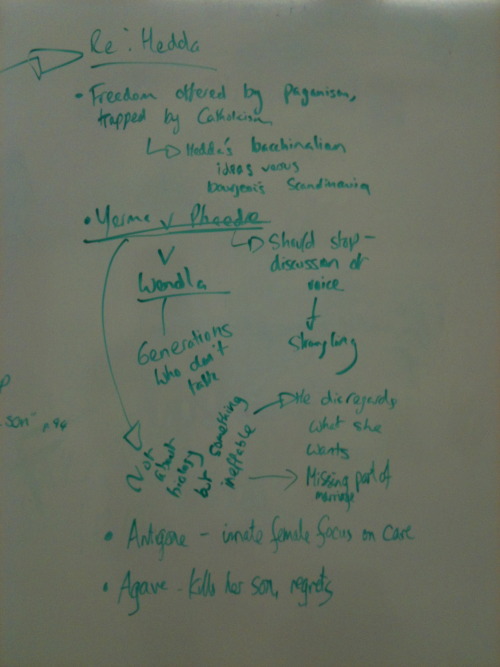 Re: Hedda
• Freedom offered by paganism,
trapped by Catholcism
Hedda's bacchinalian
ideas versus
bourgeois Scandinavia
• Yerma v Phaedre
v
Wendla
Generations
who don't
talk
Should stop -
discussion of
voice
Strangling
Not
about
biology
but
something
ineffable
He disregards
what she
wants
Missing part of
marriage
• Antigone - innate female focus on care
• Agave - kills her son, regrets
son"